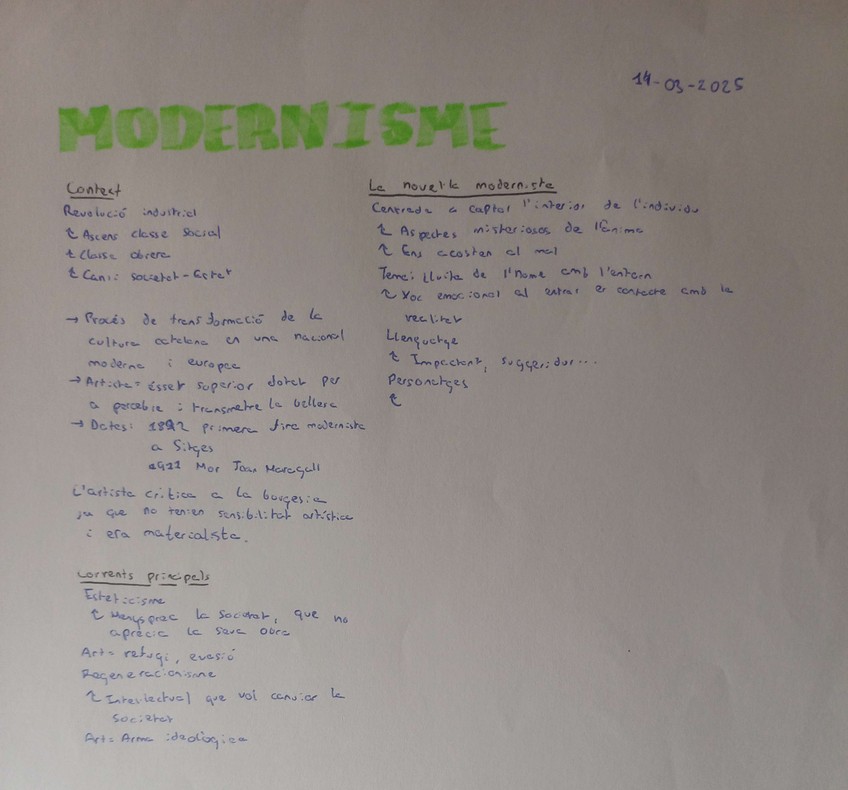 14-03-2025
MODERNISME
Context
Revolució industrial
↳ Ascens classe social
↳ Classe obrera
↳ Canvi societat - Estat
→ Procés de transformació de la
cultura catalana en una nacional
moderna i europea
→ Artista = ésser superior dotat per
a percebre i transmetre la bellesa
→ Dates: 1892 primera fira modernista
a Sitges
1911 Mor Joan Maragall
L'artista critica a la burgesia
ja que no tenien sensibilitat artística
i era materialista.
Corrents principals
Esteticisme
↳ Menysprea la societat, que no
aprècia la seva obra
Art = refugi, evasió
Regeneracionisme
↳ Intel·lectual que vol canviar la
societat
Art = Arma ideològica
La novel·la modernista
Centrada a captar l'interior de l'individu
↳ Aspectes misteriosos de l'ànima
↳ Ens acosten al mal
Tema: Lluita de l'home amb l'entorn
↳ Xoc emocional al entrar en contacte amb la
realitat
Llenguatge
↳ Impactant, suggeridor...
Personatges
↳